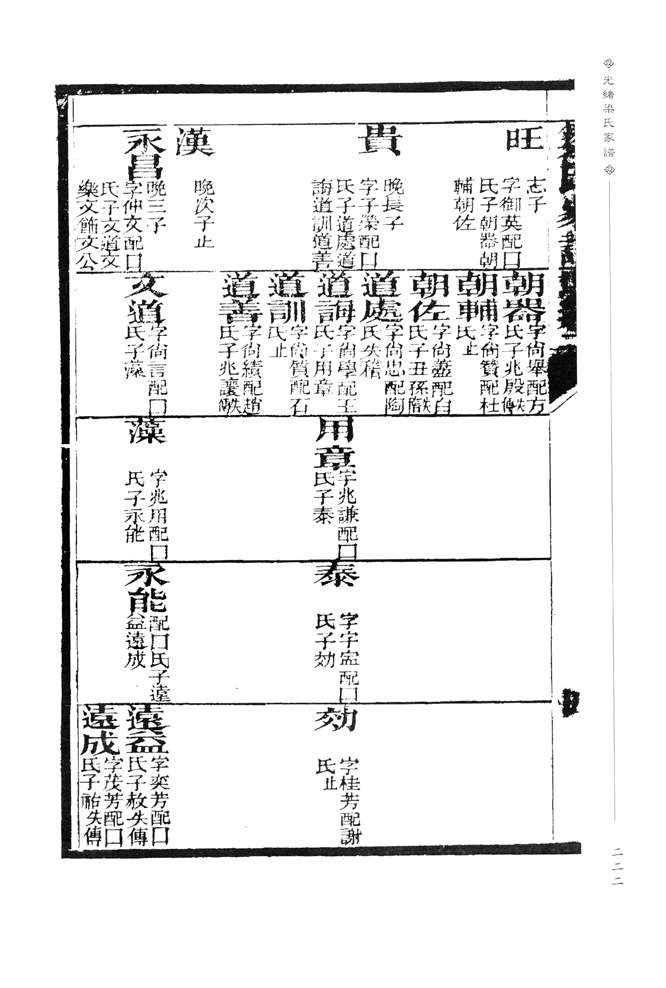 光緒梁氏家譜
旺
志子
字御英配口
氏子朝器朝
輔朝佐
貴
晚長子
字子榮配口
氏子道處道
誨道訓道善
漢
晚次子止
永昌
晚三子
字仲文配口
氏子文道文
樂文飾文公
朝器
字尚舉配方
氏子兆殷失傳
朝輔
字尚贊配杜
氏止
朝佐
字尚蓋配白
氏子丑孫
道處
字尚忠配陶
氏失稽
道誨
字尚學配王
氏子用章
道訓
字尚質配石
氏止
道善
字尚績配趙
氏子兆讓
文道
字尚言配口
氏子藻
用章
字兆謙配口
氏子泰
藻
字兆用配口
氏子永能
泰
字宇宏配口
氏子効
永能
配口氏子遠
益遠成
効
字桂芳配謝
氏止
遠益
字奕芳配口
氏子赦失傳
遠成
字茂芳配口
氏子祐失傳
二二二